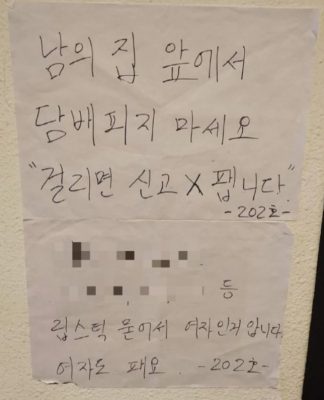 남의 집 앞에서
담배피지 마세요
"걸리면 신고 X 팹니다"
-202호-
등
립스틱 묻어서 여자인거 압니다
여자도 패요 -202호-